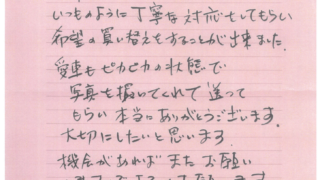 いつものように丁寧な対応をしてもらい
希望の買い替えをすることが出来ました。
愛車もピカピカの状態で
写真も撮いてくれて送って
もらい本当にありがとうございます。
大切にしたいと思います。
機会があればまたお願い